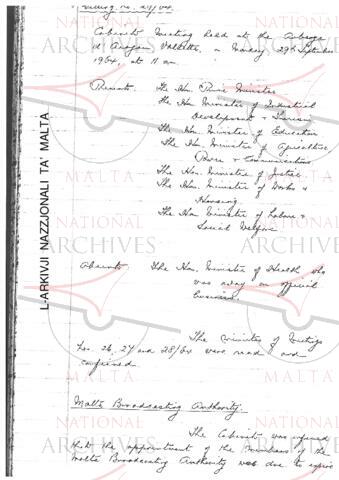 Meeting No. 29/64.
Cabinet Meeting held at the Auberge
d'Aragon, Valletta, on Monday 29th September
1964, at 11 am.
Present: The Hon. Prime Minister
The Hon. Minister of Industrial
Development & Tourism
The Hon. Minister of Education
The Hon. Minister of Agriculture
Power & Communications
The Hon. Minister of Justice
The Hon. Minister of Works &
Housing
The Hon. Minister of Labour &
Social Welfare
Absent: The Hon. Minister of Health who
was away on official
business.
The minutes of Meetings
Nos. 26, 27 and 28/64 were read and
confirmed.
Malta Broadcasting Authority.
The Cabinet was informed
that the appointment of the members of the
Malta Broadcasting Authority was due to expire
L-ARKIVJI NAZZJONALI TA' MALTA
NATIONAL
ARCHIVES
MALTA